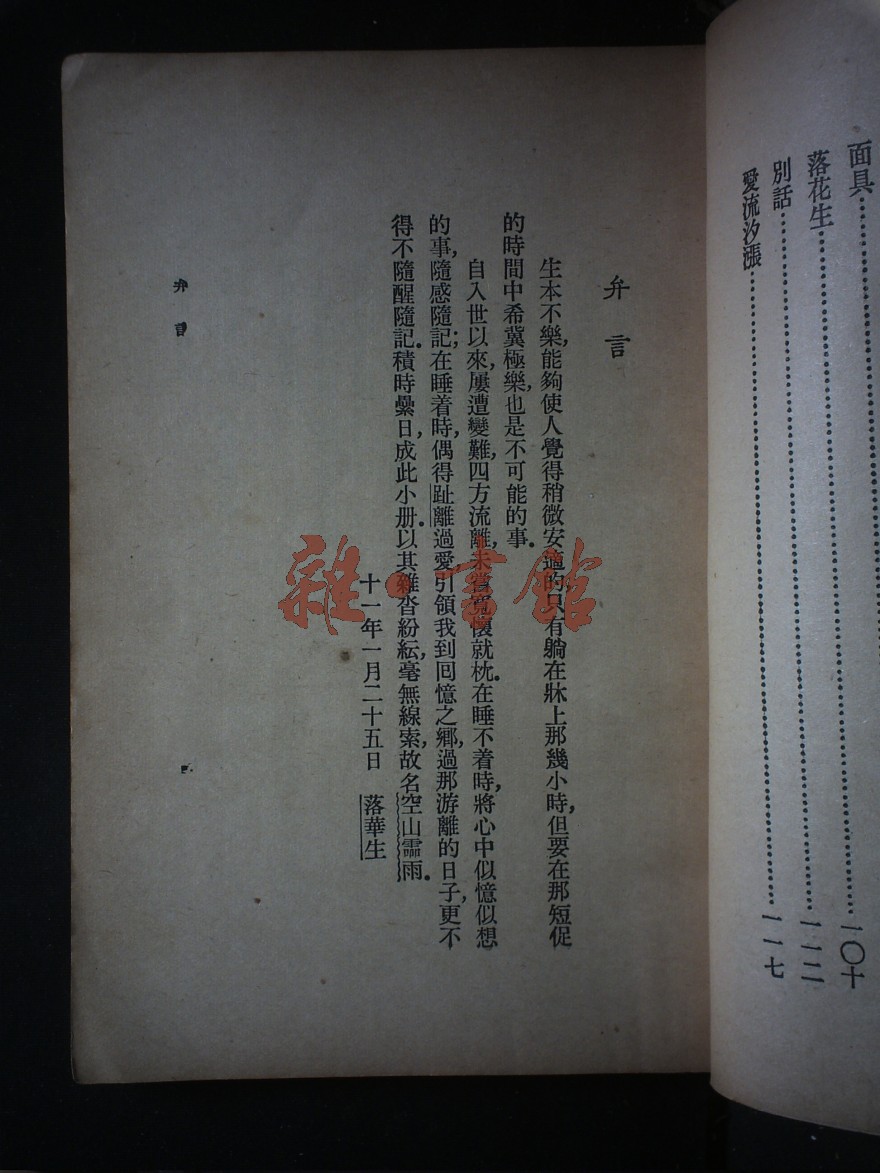 面具……
落花生……一〇十
別話……一一二
愛流汐漲……一一七
弁言
生本不樂,能夠使人覺得稍微安適的,只有躺在牀上那幾小時,但要在那短促
的時間中希冀極樂,也是不可能的事。
自入世以來,屢遭變難,四方流離,未嘗寬懷就枕。在睡不着時,將心中似憶似想
的事,隨感隨記;在睡着時,偶得趾離過愛,引領我到回憶之鄉,過那游離的日子,更不
得不隨醒隨記。積時纍日,成此小册。以其雜沓紛紜,毫無線索,故名空山霝雨。
十一年一月二十五日 落華生
弁言
雜·書館